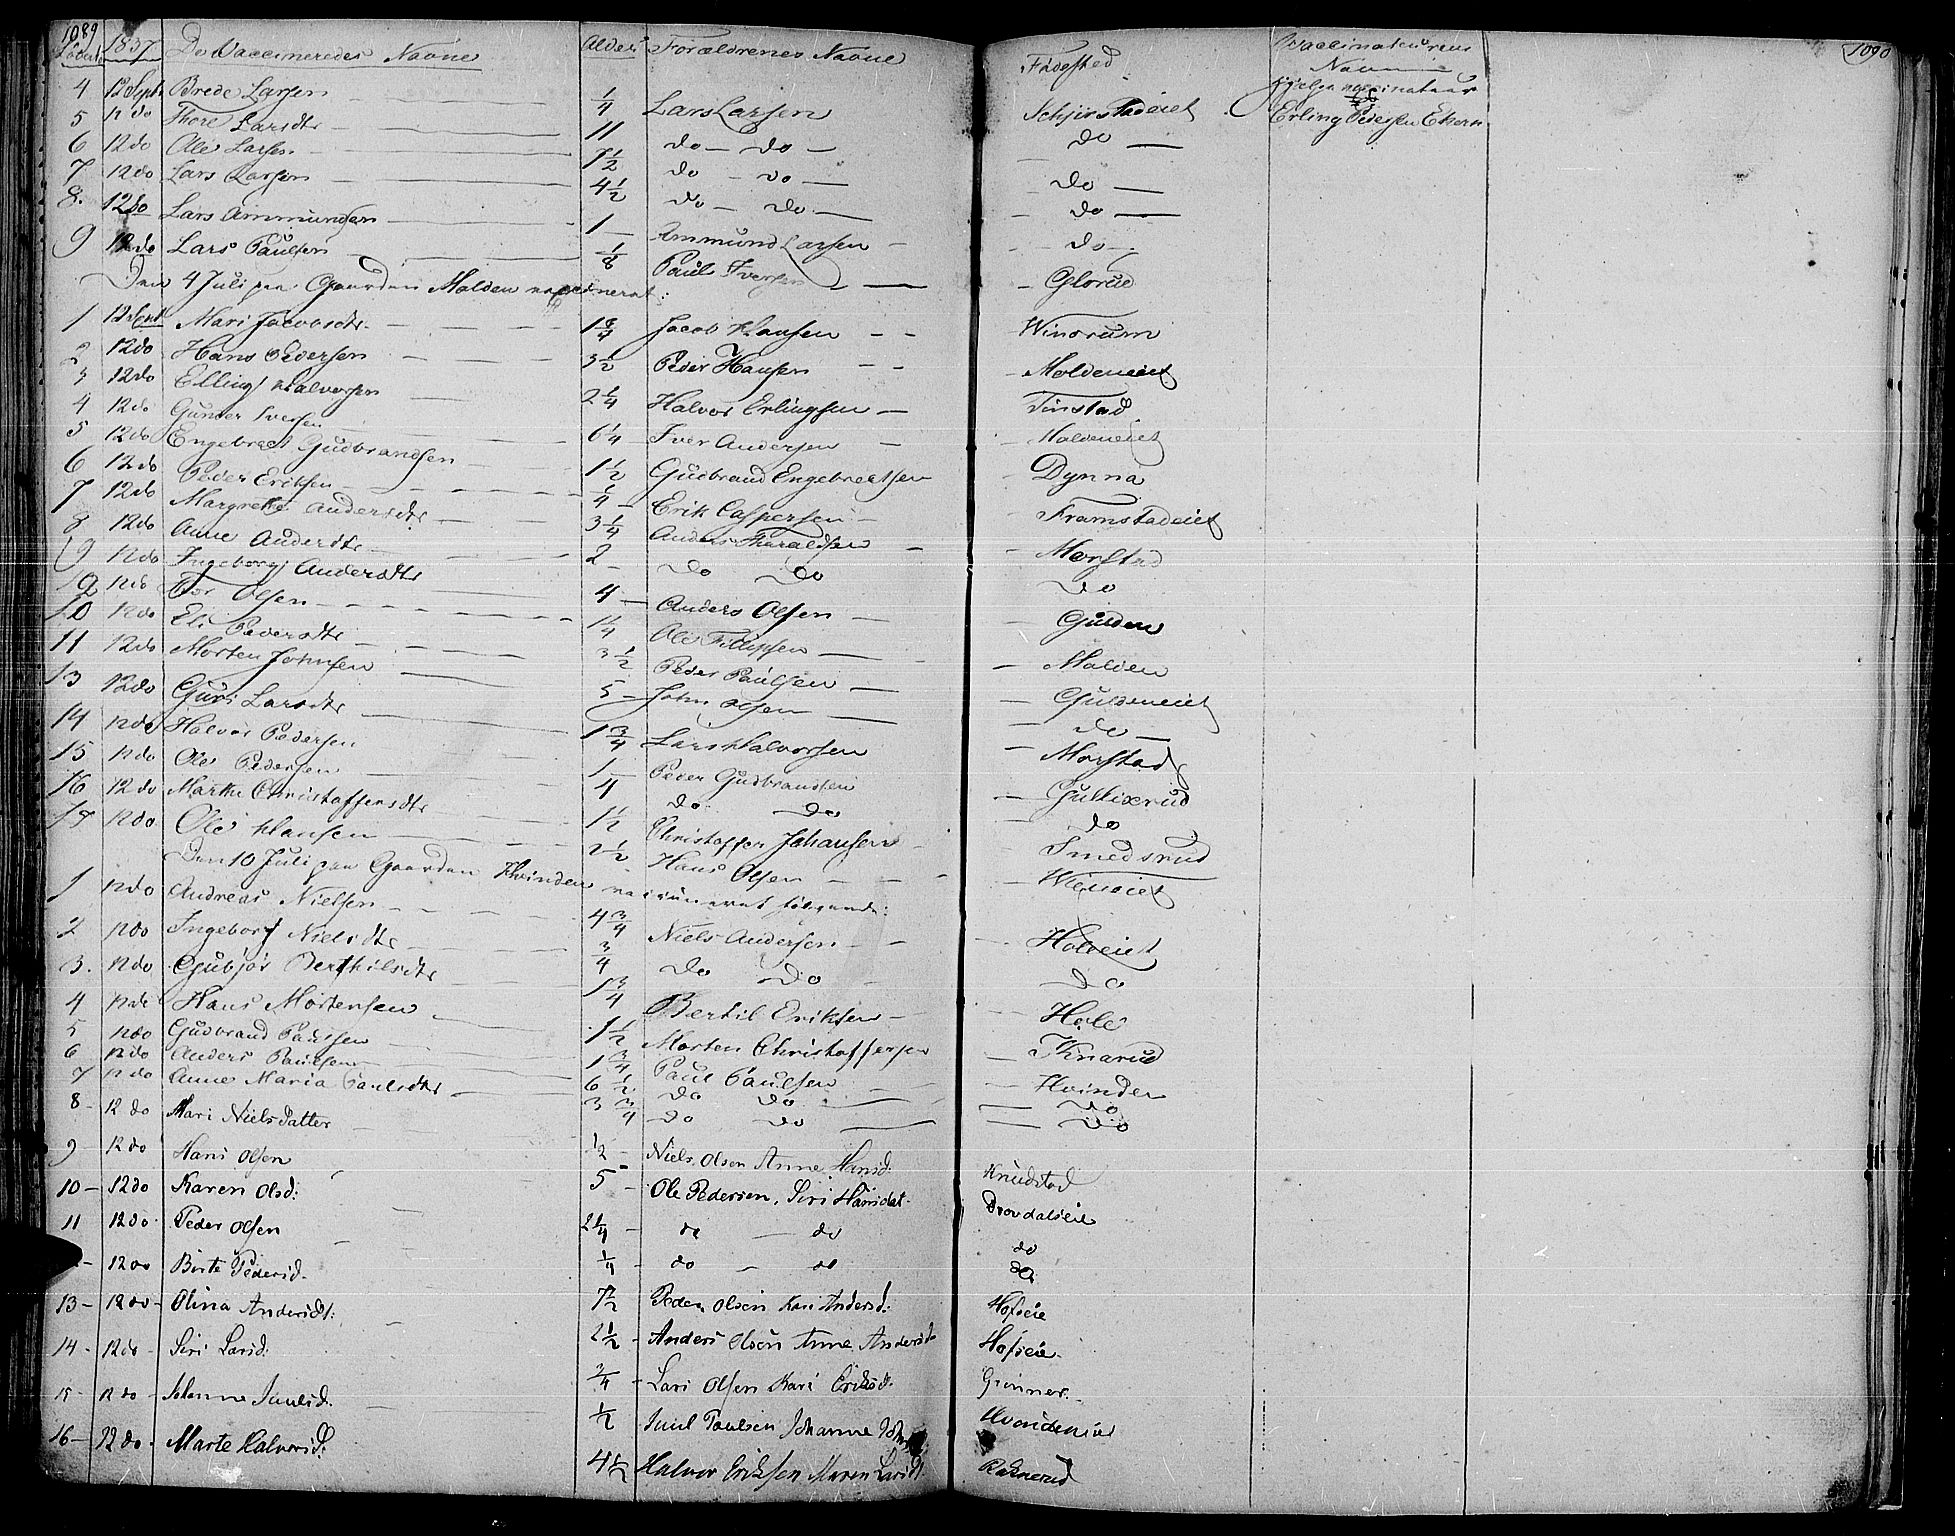 1089 1090
1837 De Vaccineredes Navne Alder Forældrenes Navne Födested Vaccinateurens Navn
4 12 Sept Brede Larsen 1/4 Lars Larsen Erling Pedersen
5 12 do Thore Larsdtr 11 do do do
6 12 do Ole Larsen 7 1/2 do do do
7 12 do Lars Larsen 4 1/2 do do do
8. 12 do Lars Ammundsen 1 Ammund Larsen do
9 12 do Lars Paulsen 1/8 Paul Iversen Glorud
Den 4 Juli paa Gaarden Molden vaccineret:
1 12 Sept Mari Jacobsdtr 1 3/4 Jacob Hansen Winorum
2 12 do Hans Pedersen 3 1/2 Peder Hansen Moldeneiet
3 12 do Elling Halvorsen 2 1/4 Halvor Erlingsen Tinstad
4 12 do Gunner Iversen 6 1/4 Iver Andersen Moldeneiet
5 12 do Engebret Gudbrandsen 1 1/2 Gudbrand Engebretsen Dynna
6 12 do Peder Eriksen 1/4 Erik Caspersen Framstadeiet
7 12 do Margrethe Andersdtr 3 1/4 Anders Tharaldsen Morstad
8 12 do Anne Andersdtr 2 do do do
9 12 do Ingeborg Andersdtr 4 Anders Olsen Gulden
12 do Olsen 1 1/4 Ole Filipsen Molden
10 12 do Eli Pedersdtr 3 1/2 Peder Paulsen Guldeneiet
11 12 do Morten Johnsen 5 John Olsen do
13 12 do Guri Larsdtr 1 3/4 Lars Halvorsen Morstad
14 12 do Halvor Pedersen 1 Peder Gudbrandsen Gullixrud
15 12 do Ole Pedersen 4 do do do
16 12 do Marthe Christoffersdtr 1 1/2 Christoffer Johansen Smedsrud
17 12 do Ole Hansen 2 1/2 Hans Olsen
Den 10 Juli paa Gaarden Hvinden vaccineret følgende:
1 12 do Andreas Nielsen 4 3/4 Niels Andersen Holeeiet
2 12 do Ingeborg Nielsdtr 3/4 do do do
3. 12 do Gubjør Berthilsdtr 1 3/4 Bertil Eriksen Hole
4 12 do Hans Mortensen 1 1/2 Morten Christoffersen Knarud
5 12 do Gudbrand Paulsen 1 3/4 Paul Paulsen Hvinden
6 12 do Anders Paulsen 6 1/2 do do do
7 12 do Anne Maria Paulsdtr 3 3/4 do do do
8 - 12 do Mari Nielsdatter 1/2 - Niels Olsen Anne Hansd: Knudstad
9 - 12 do Hans Olsen 5 - Ole Pedersen, Siri Hansdat.
10 - 12 do Karen Olsd: 2 1/4 - do - do do
11 12 do Peder Olsen 1/4 - do - do do
12 do Birte Pedersd. 7 1/2 Peder Olsen Kari Andersd: Hofseie
13 - 12 do - Olina Andersdt: 2 1/2 - Anders Olsen Anne Andersd Hofseie
14 - 12 do - Siri Larsd. 3/4 - Lars Olsen Kari Eriksd. Grinner
15 - 12 do - Johanne 1/2 Paulsen Johanne
16 - 12 do - Marte Halvorsd: 4 1/2 Halvor Eriksen Maren Larsdt. Raknerud